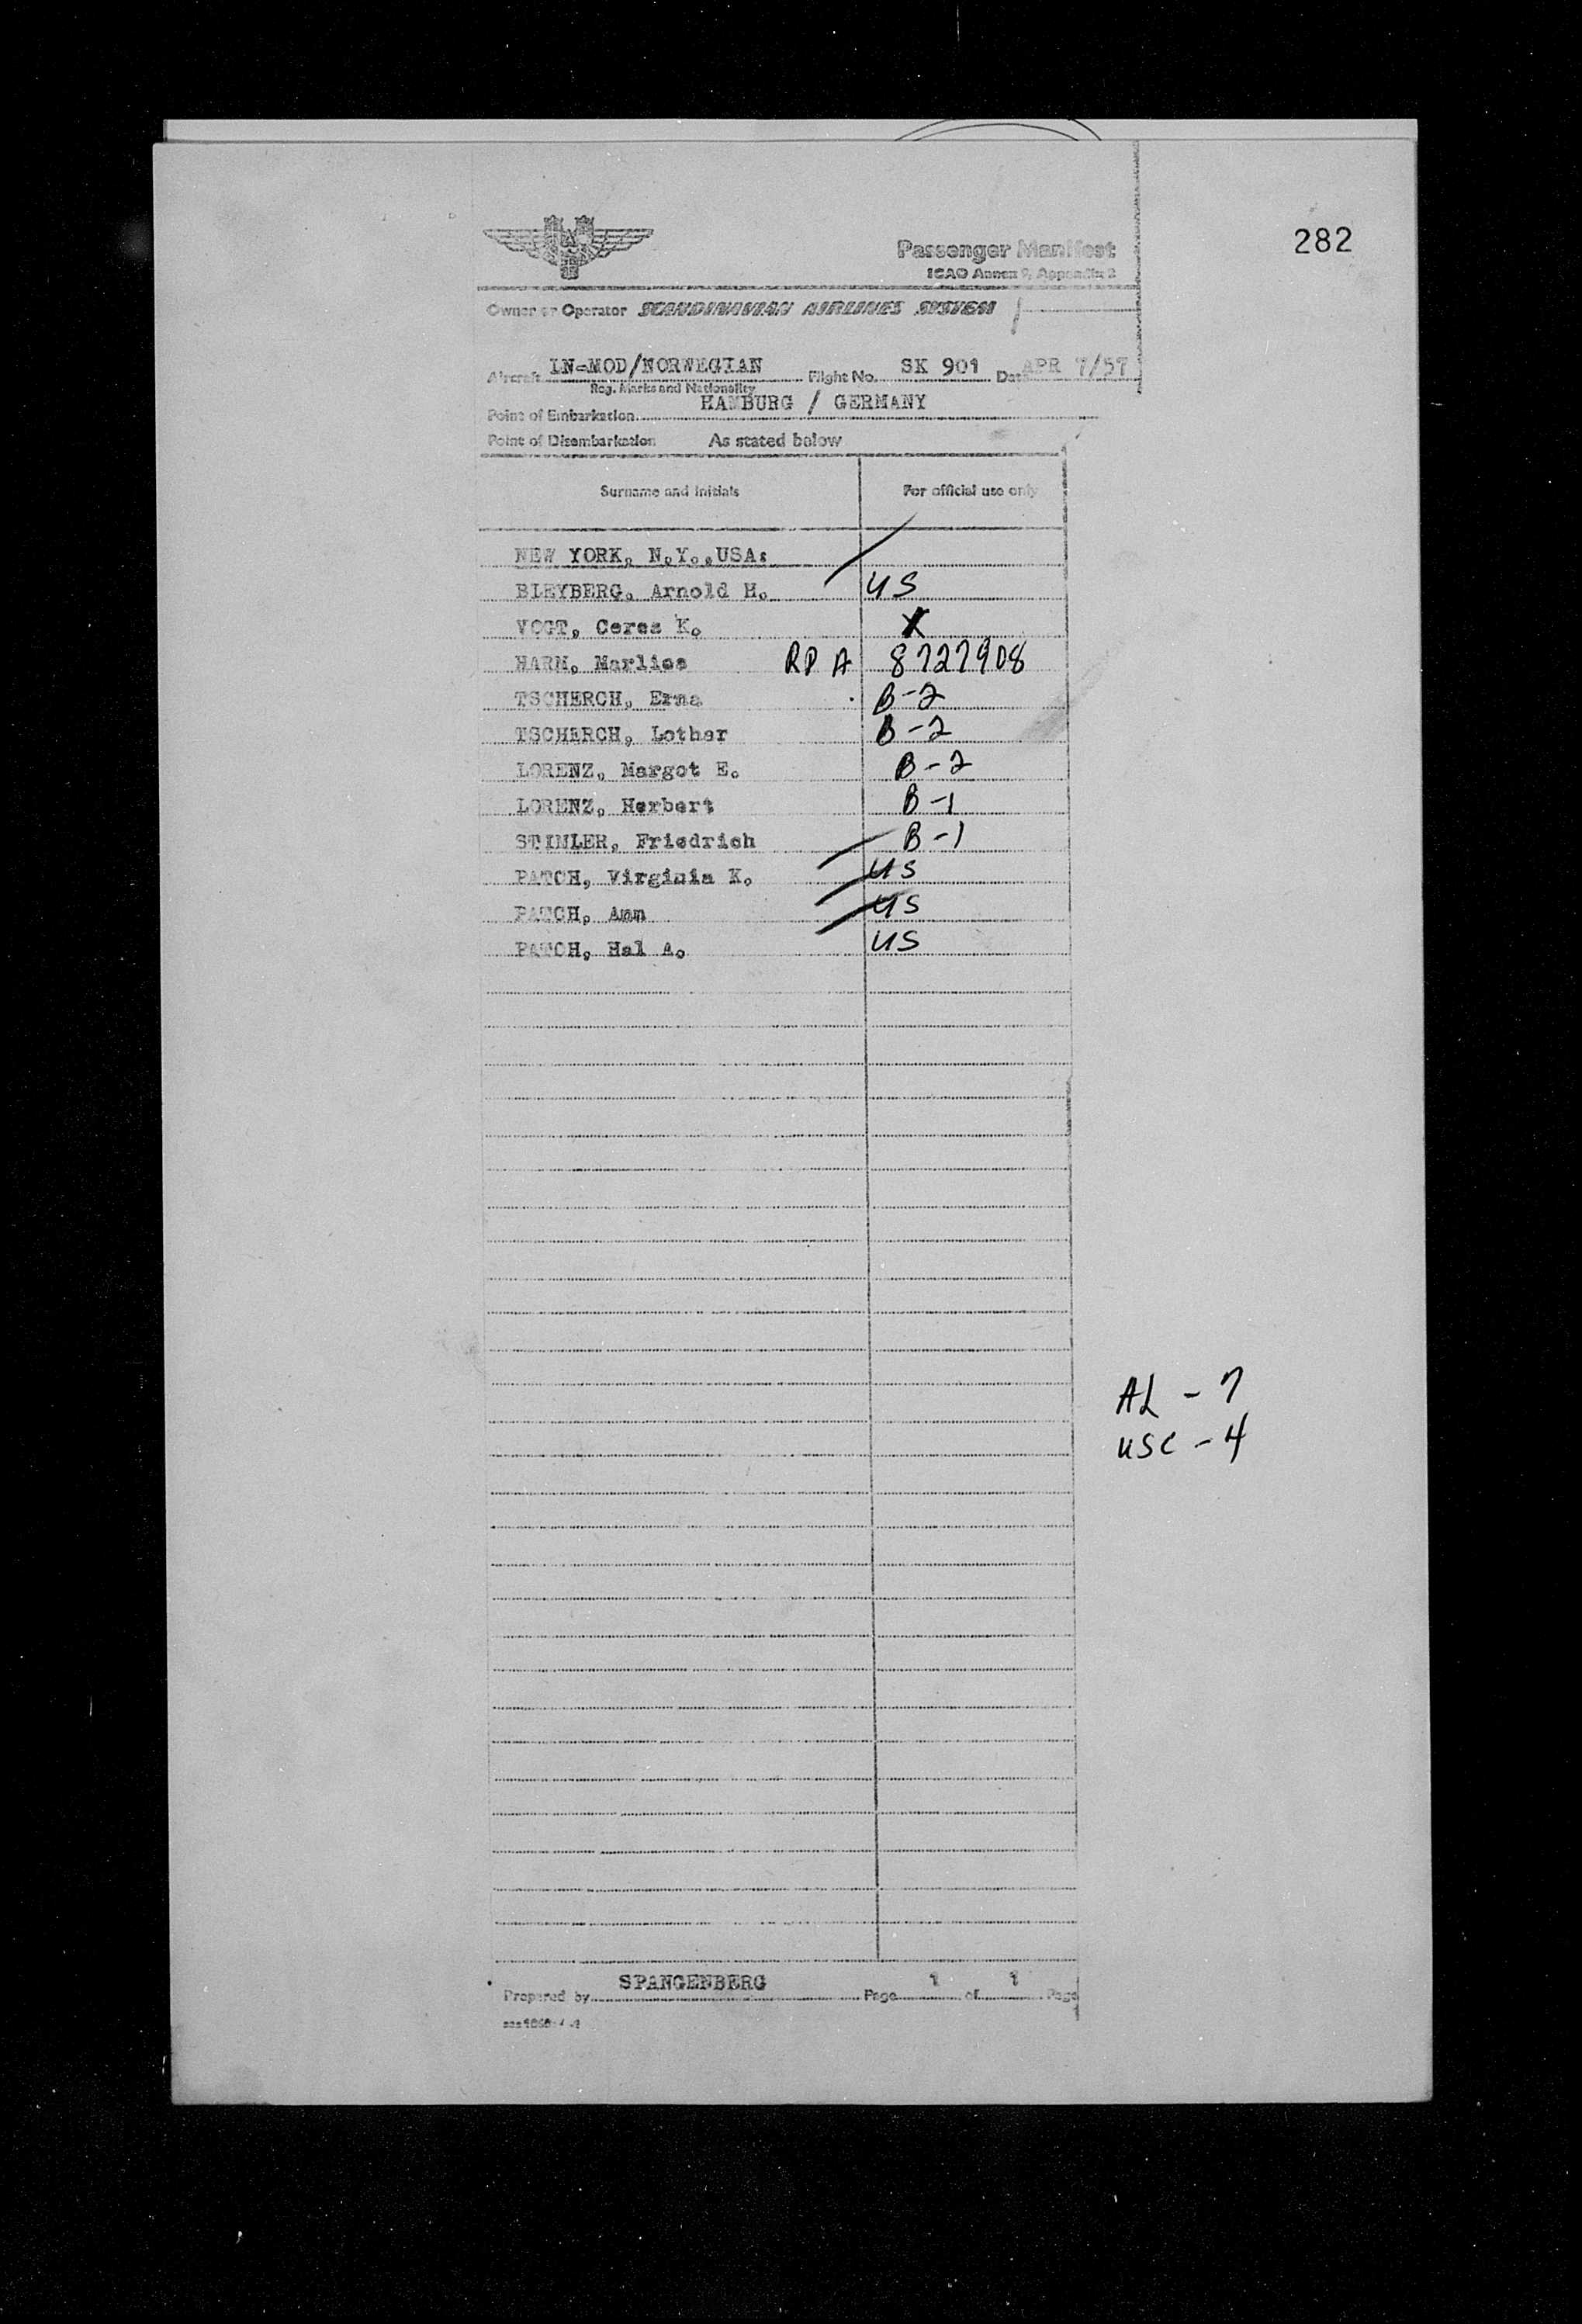 282
Passenger Manifest
ICAO Annex 9, Appendix 2
Owner or Operator SCANDINAVIAN AIRLINES SYSTEM
Aircraft LN-MOD/NORWEGIAN Flight No. SK 901 Date APR 7/57
Reg. Marks and Nationality
Point of Embarkation HAMBURG / GERMANY
Point of Disembarkation As stated below
Surname and Initials For official use only
NEW YORK, N.Y.,USA:
BLEYBERG, Arnold H. US
VOGT, Ceres K. X
HARM, Marlies RP A 8727908
TSCHERCH, Erna B-2
TSCHERCH, Lothar B-2
LORENZ, Margot E. B-2
LORENZ, Herbert B-1
STIMLER, Friedrich B-1
PATCH, Virginia K. US
PATCH, Ann US
PATCH, Hal A. US
AL - 7
USC - 4
Prepared by SPANGENBERG Page 1 of 1 Page